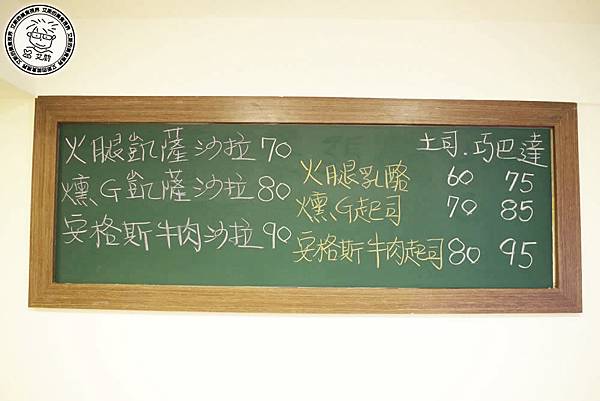 火腿凱薩沙拉70
燻G凱薩沙拉80
安格斯牛肉沙拉90
土司.巧巴達
火腿乳酪 60 75
燻G起司 70 85
安格斯牛肉起司80 95